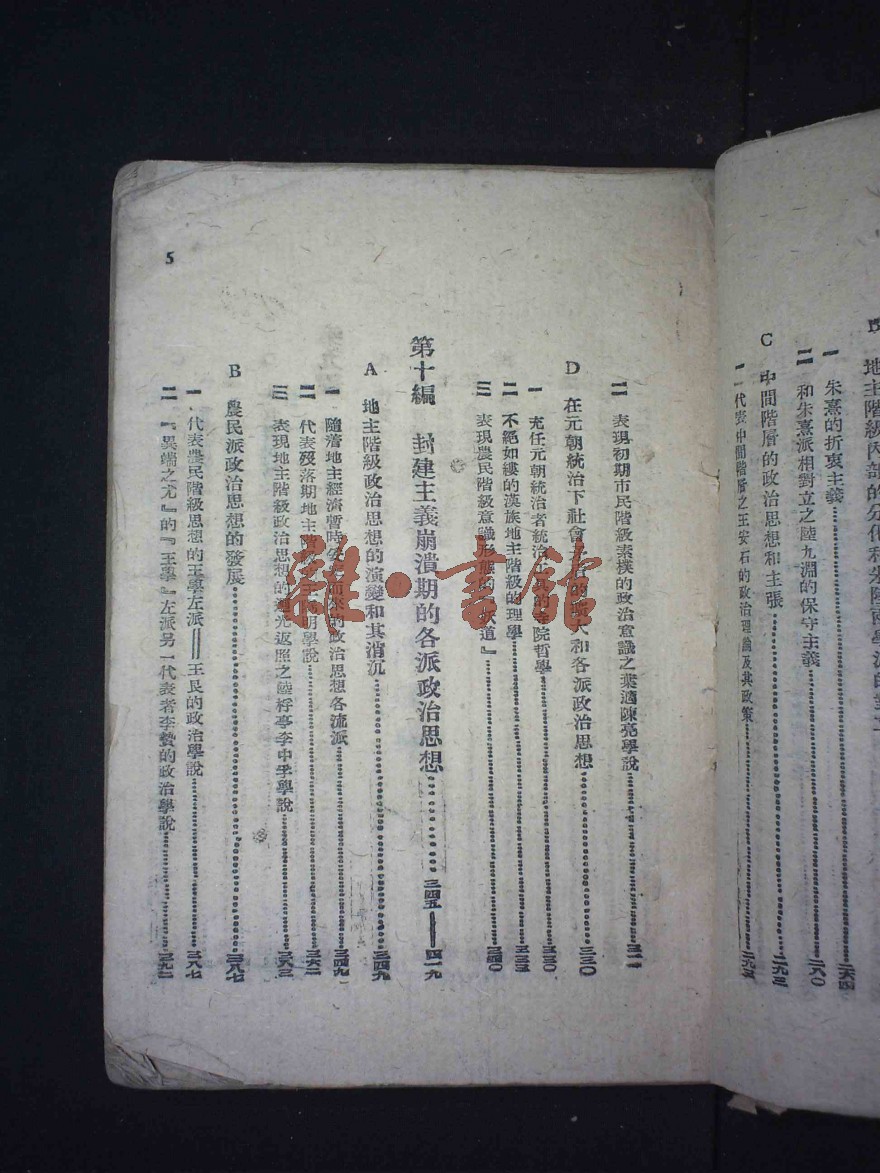 地主階級內部的分化和朱陸兩學派的
一 朱熹的折衷主義 二六四
二 和朱熹派相對立之陸九淵的保守主義 二八〇
C 中間階層的政治思想和主張 二九三
一 代表中間階層之王安石的政治理論及其政策 二九五
二 表現初期市民階級素樸的政治意識之葉適陳亮學說 三二一
D 在元朝統治下社會 的 大和各派政治思想 三三〇
一 充任元朝統治者統治工具的寺院哲學 三三〇
二 不絕如縷的漢族地主階級的理學 三三五
三 表現農民階級意識形態的 道』 三四〇
第十編 封建主義崩潰期的各派政治思想 三四五——四一九
A 地主階級政治思想的演變和其消沉 三四九
一 隨着地主經濟暫時 而來的政治思想各流派 三四九
二 代表沒落期地主階 陽明學說 三六二
三 表現地主階級政治思想的迴光返照之陸桴亭李中孚學說 三六三
B 農民派政治思想的發展 三八七
一 代表農民階級思想的王學左派——王艮的政治學說 三八七
二 『異端之尤』的『王學』左派另一代表者李贄的政治學說 三九二
5
雜·書館